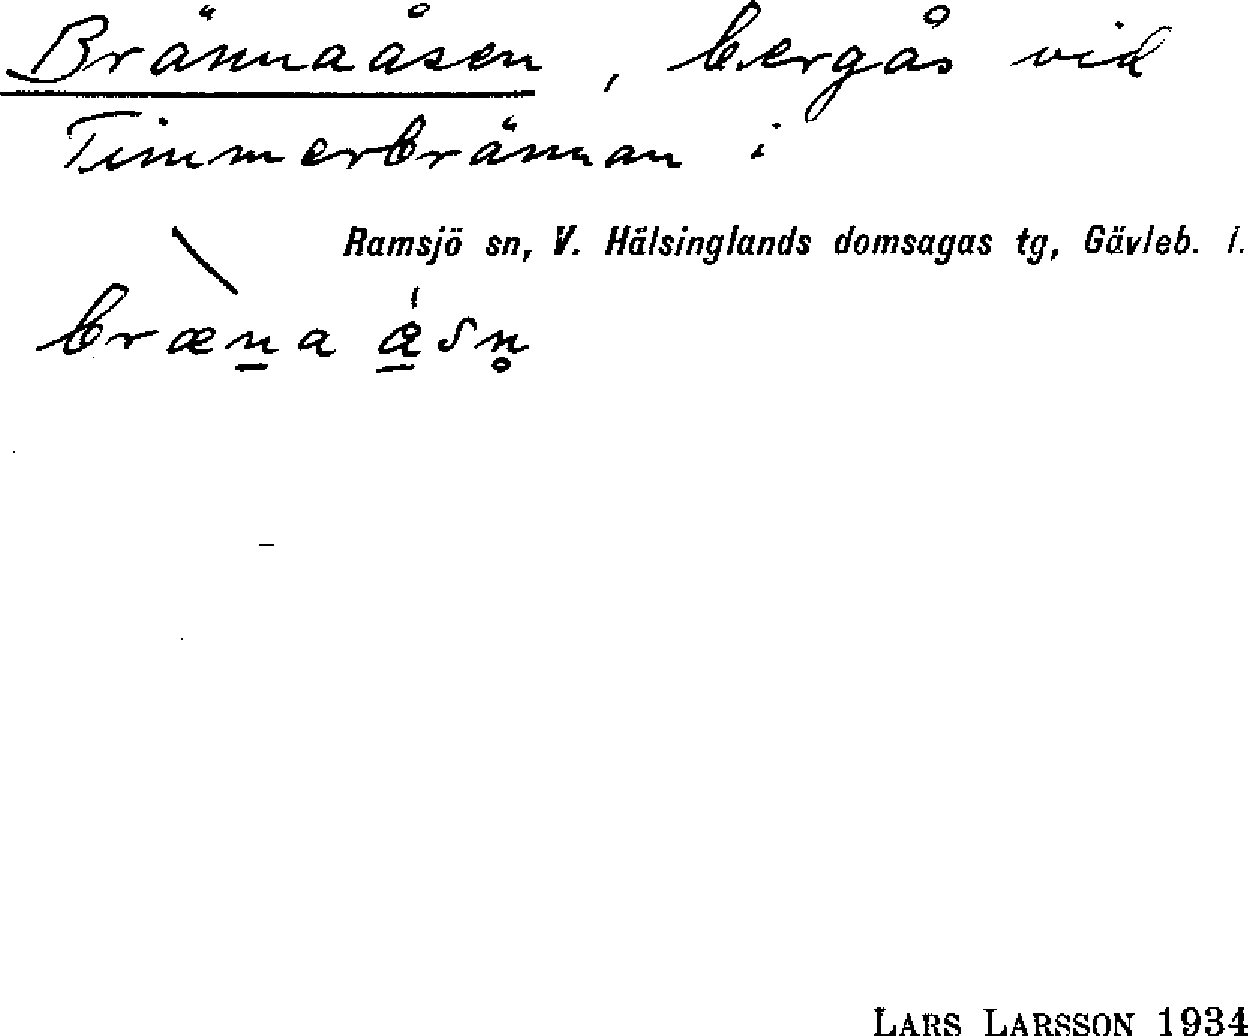 Brännaåsen, bergås vid
Timmerbrännan i
Ramsjö sn, V. Hälsinglands domsagas tg, Gävleb. l.
bræn̲a ǻ̲sn̥
LARS LARSSON 1934